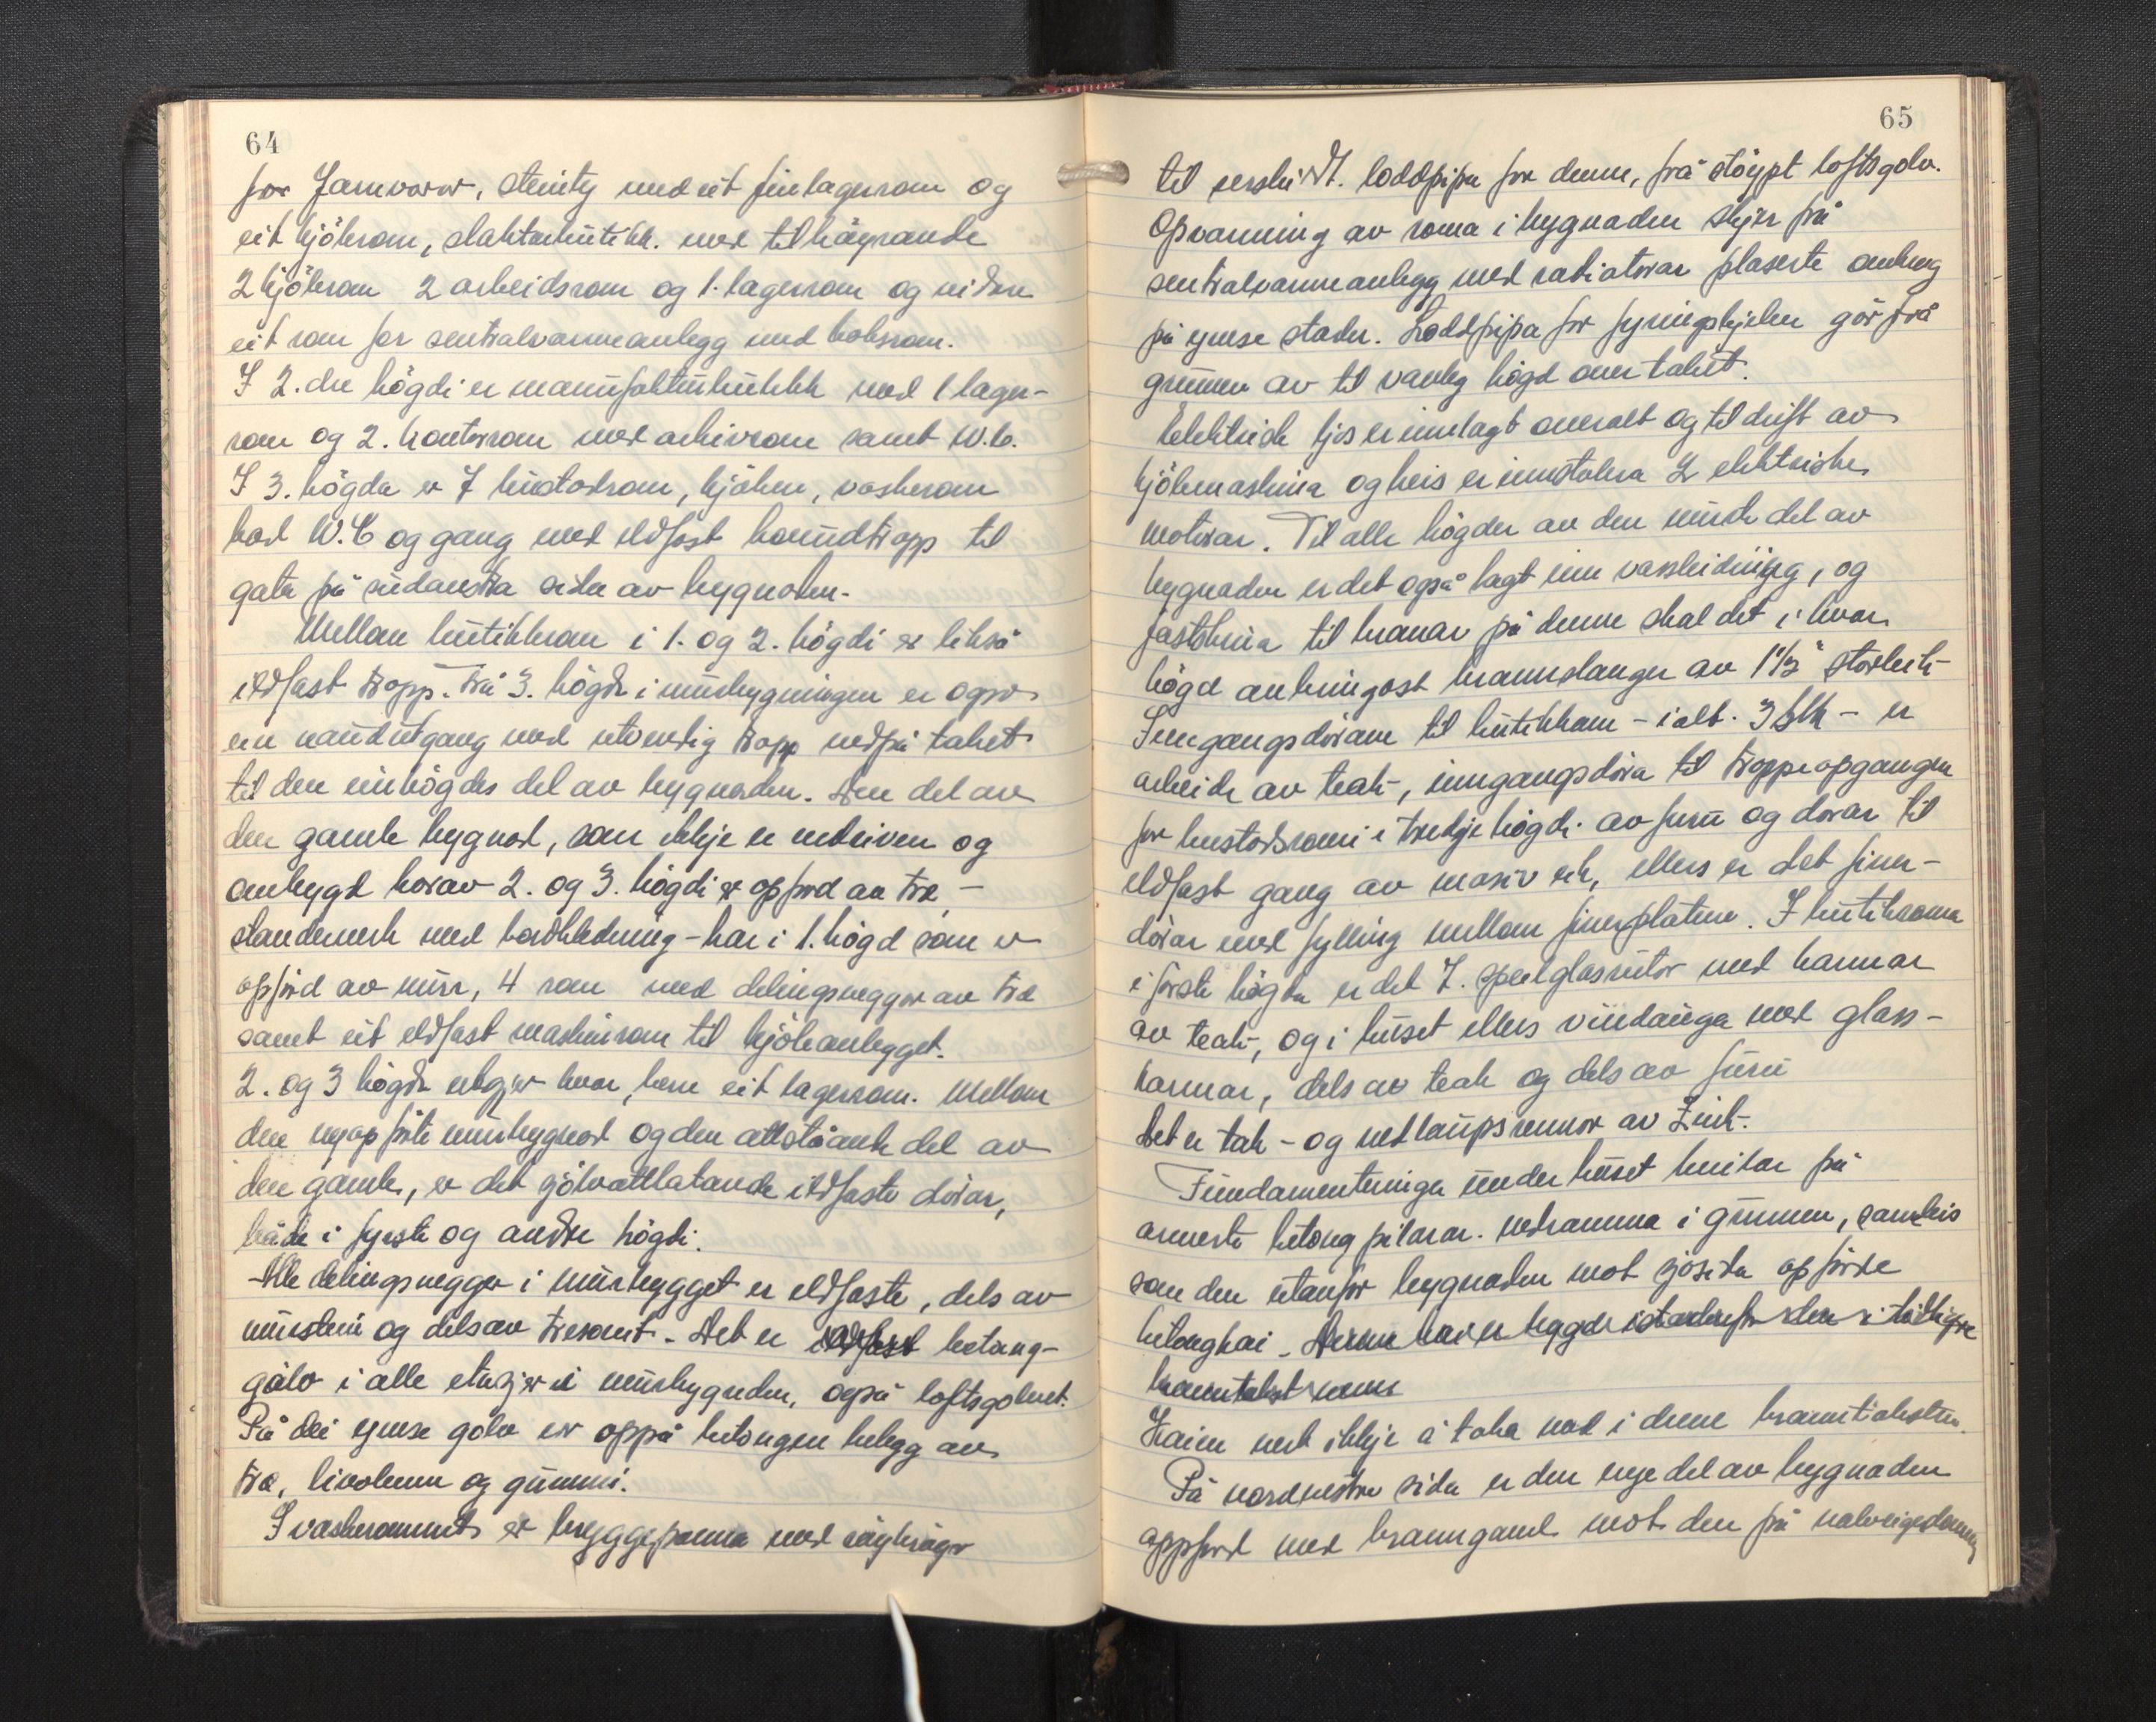 64
for Jarnvarer, steinty med eit finlagerrom og
eit kjölerom, slakterbutikk. med tilhöyrande
2 kjölerom 2 arbeidsrom og 1. lagerrom og vidare
eit rom for sentralvarmeanlegg med koksrom.
I 2. dre högdi er manufakturbutikk med 1 lager-
rom og 2. kontorrom med arkivrom samt W.C.
I 3. högda er 7 bustadrom, kjöken, vaskerom
bad W.C og gang med eldfast hovudtropp til
gata på sudaustra sida av bygnaden.
Mellom butikkrom i 1. og 2. högdi er likså
eldfast tropp. Frå 3. högda i murbygningen er ogso
ein naudutgang med utvendig tropp nedpå taket
til den einhögdes del av bygnaden. Den del av
den gamle bygnad, som ikkje er nedriven og
ombygd horav 2. og 3. högdi er opförd av tre-
standerverk med bordkledning - har i 1. högd som er
opförd av mur, 4 rom med delingsvegger av tre
samt eit eldfast maskinrom til kjöleanlegget.
2. og 3 högda utgjer hvar, berre eit lagerrom. Mellom
den nyopförte murbygnad og den attståande del av
den gamle, er det sjölvattlatande eldfaste dörar,
både i fyrste og andre högdi.
Alle delingsvegger i murbygget er eldfaste, dels av
murstein og dels av tresomit. Det er eldfast betong-
golv i alle etasjer i murbygnden, også loftsgolvet.
På dei ymse golv er oppå betongen belegg av
tre, linoleum og gummi.
I vaskerommet er bryggepanna med
65
til loddpipa for denne, frå stöypt loftsgolv.
Opvarming av roma i bygnaden skjer frå
sentralvarmeanlegg med radiatorar plaserte omkring
på ymse stader. Loddpipa for fyringskjelen gör frå
grunnen av til vanleg högd over taket.
Elektrisk ljos er innlagt overalt og til drift av
kjölemaskina og heis er innstalera 2 elektriske
motorar. Til alle högder av den murde del av
bygnaden er det også lagt inn vassleidning, og
fastskrua til kranar på denne skal det i hvar
högd anbringast brannslanger av 1 1/2" storleik-
Inngangsdörane til butikkane - i alt. 3 stk - er
arbeide av teak-, inngangsdöra til troppeopgangen
for bustadsromi i tredje högdi. av furu og dörar til
eldfast gang av masiv eik, ellers er det finer-
dörar med fylling mellom finerplatene. I butikroma
i förste högda er det 7. speilglasrutor med karmar
av teak-, og i huset ellers vindauga med glass-
karmar, dels av teak og dels av furu
Det er tak- og nedlaupsrennor av Zink.
Fundamenteringa under huset kvilar på
armerte betong pilarar. nedramma i grunnen, sameleis
som den utanfor bygnaden mot sjösida opförde
betongkai. Denne kai er bygde
Kaien vert ikkje å taka med i denne branntaksten.
På nordvestre sida er den nye del av bygnaden
oppförd med branngavl mot den på naboeigedomen